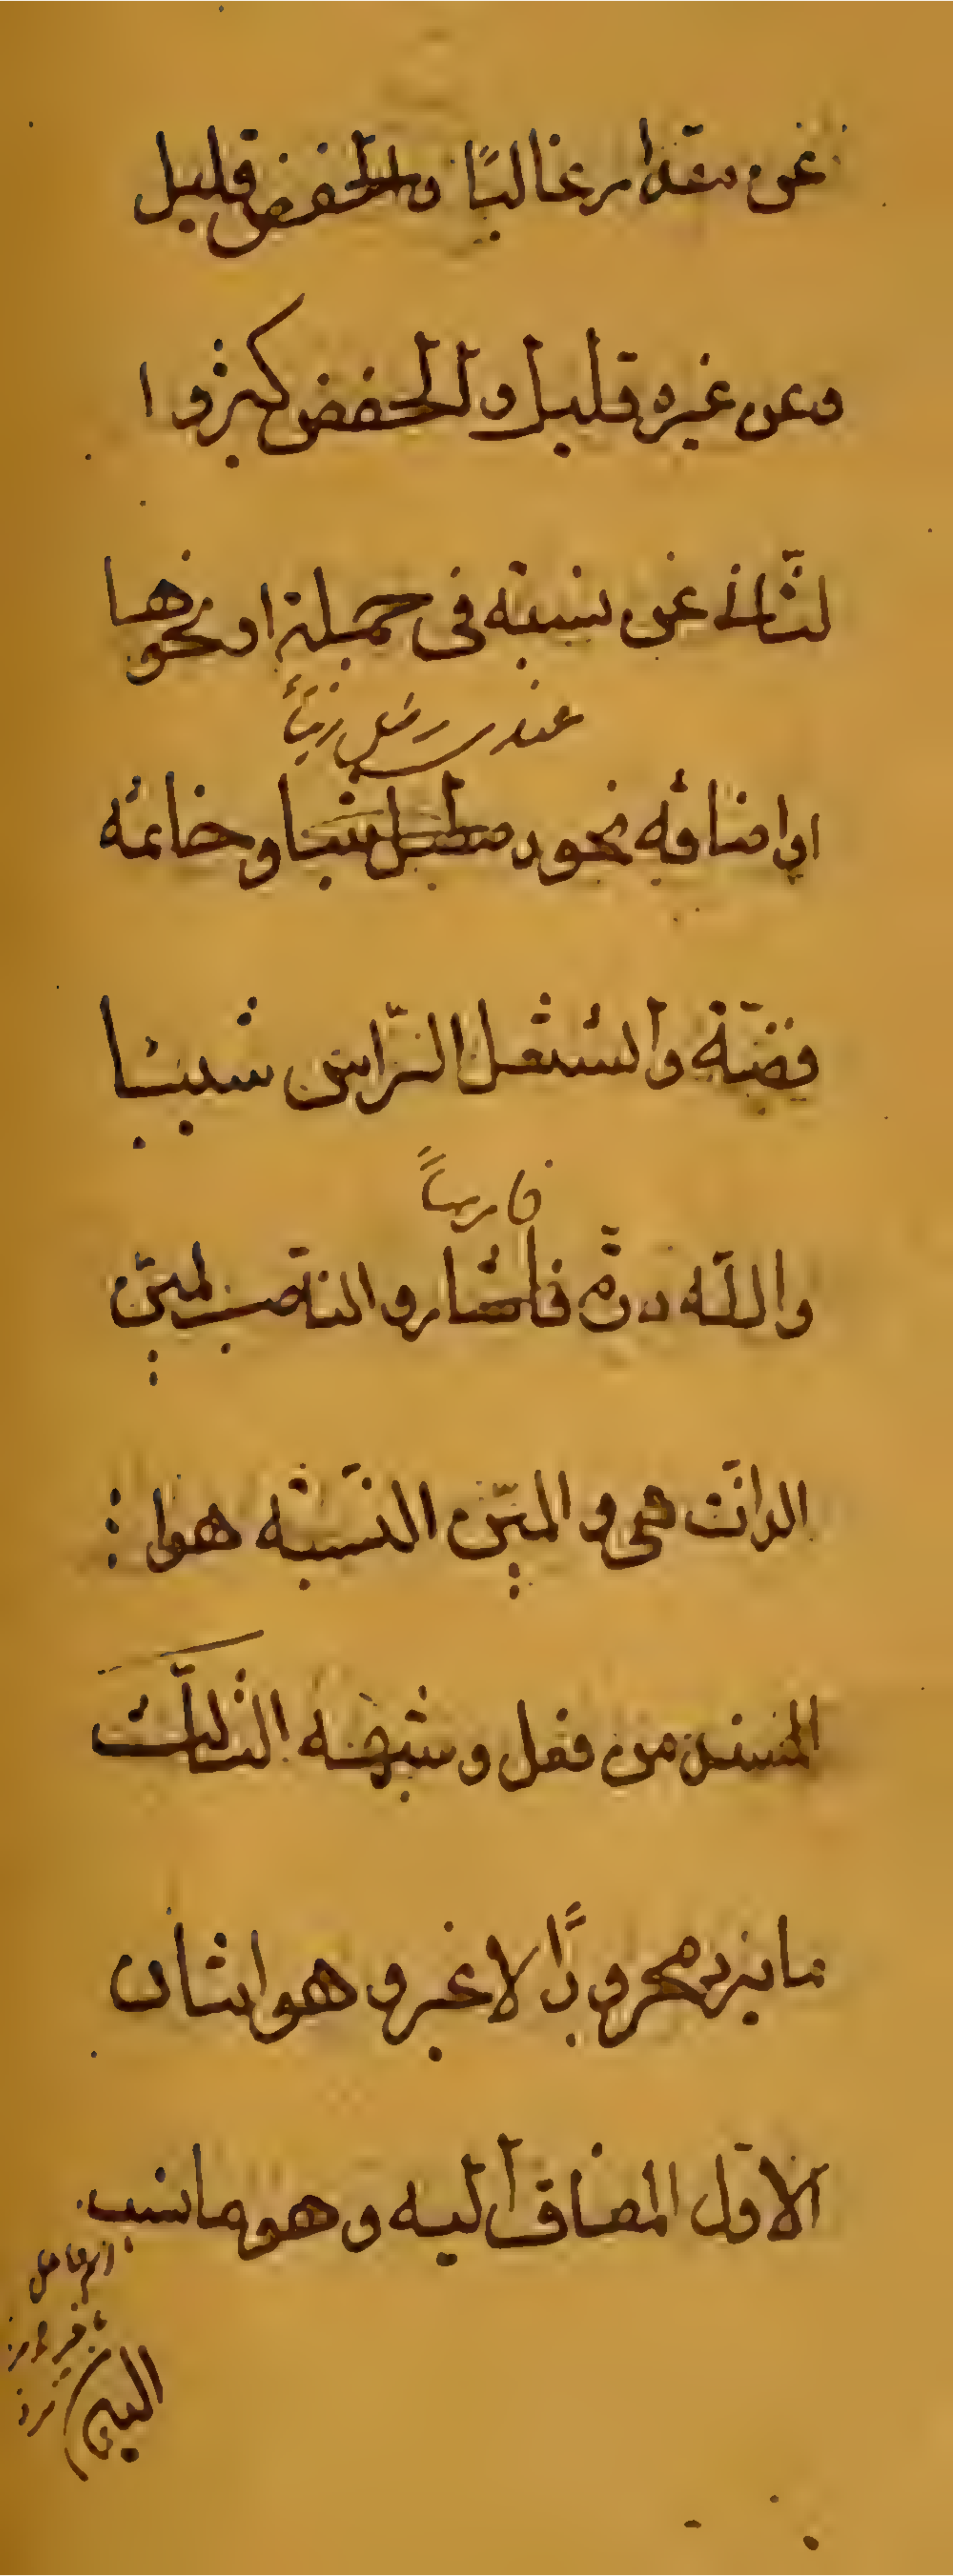 عن مقدار غالبًا والخفض قليل
وعن غيره قليل والخفض كثير وا
لثّانے عن نسبته فى جملة او نحوها
عندى رطل زيتاً
او اضافه نحو رطل زيتا و خاتمه
فضّة واشتعل الرّاس شيبًا
فارساً
واللّه درّه فارسا والناصب لمبيّن
الذات هى و المبيّن النّسبه هوا :
المسند من فعل و شبهه الثالث
ما يزد مجرورًا لا غير و هو اثنان
الاوّل المضاف اليه و هو ما نسب
اليه